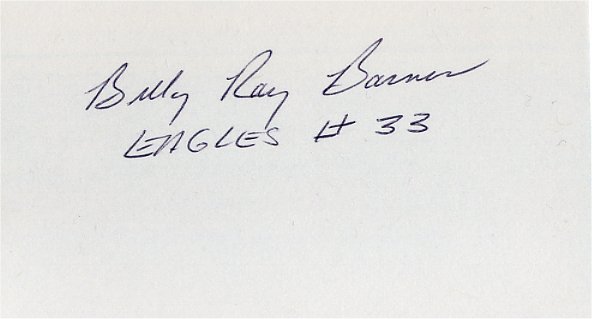 Billy Ray Barnes
EAGLES # 33